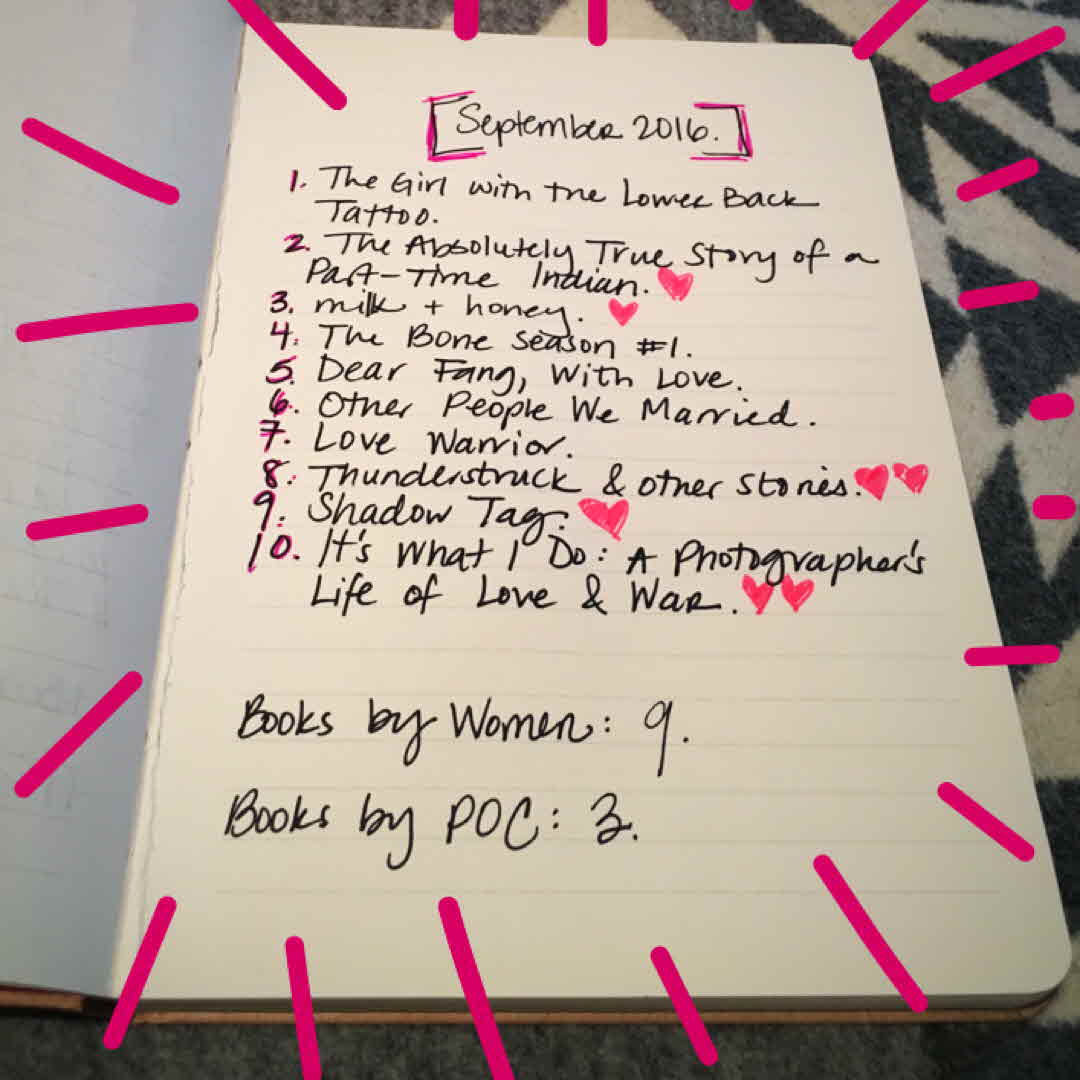 September 2016.
1. The Girl with the Lower Back
Tattoo.
2. The Absolutely True Story of a
Part-Time Indian.
3. milk + honey.
4. The Bone Season #1.
5. Dear Fang, With Love.
6. Other People We Married.
7. Love Warrior.
8. Thunderstruck & other stories.
9. Shadow Tag.
10. It's What I Do: A Photographer's
Life of Love & War.
Books by Women: 9.
Books by POC: 3.